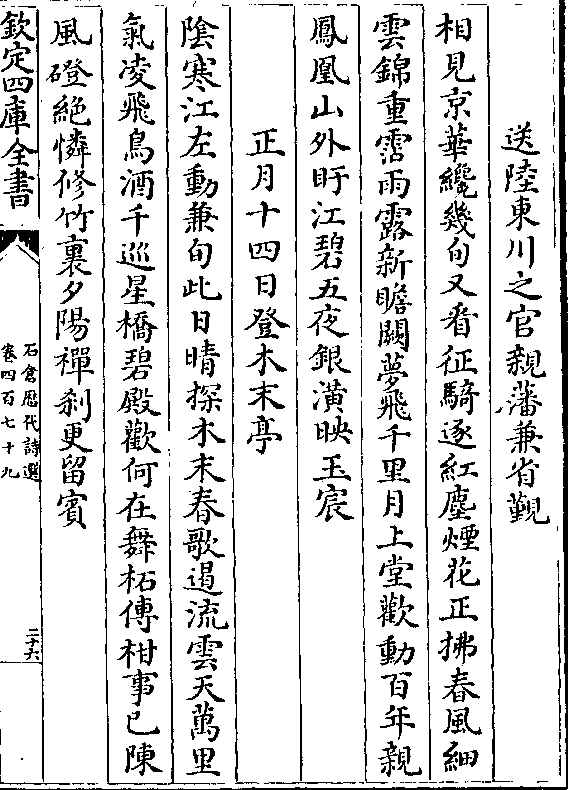 送陸東川之官親藩兼省覲
相見京華纔幾旬又看征騎逐紅塵煙花正拂春風細
雲錦重霑雨露新瞻闕夢飛千里月上堂歡動百年親
鳳凰山外盱江碧五夜銀潢映玉宸
正月十四日登木末亭
陰寒江左動兼旬此日晴探木末春歌遏流雲天萬里
氣凌飛鳥酒千巡星橋碧殿歡何在舞柘傳柑事已陳
風磴絶憐修竹裏夕陽禪刹更留賓
欽定四庫全書
石倉歷代詩選
卷四百七十九
二十六